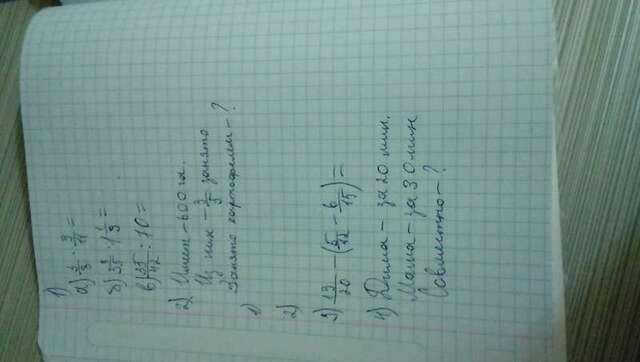 1)
а) 4/8 : 3/11 =
б) 3 3/5 : 1 1/9 =
в) 35/42 : 10 =
2) Имеет - 600 га.
Из них - 3/5 занято
Занято картофелем - ?
1)
2)
3) 13/20 - (5/12 - 6/15) =
4) Дима - за 20 мин.
Маша - за 30 мин
Совместно - ?